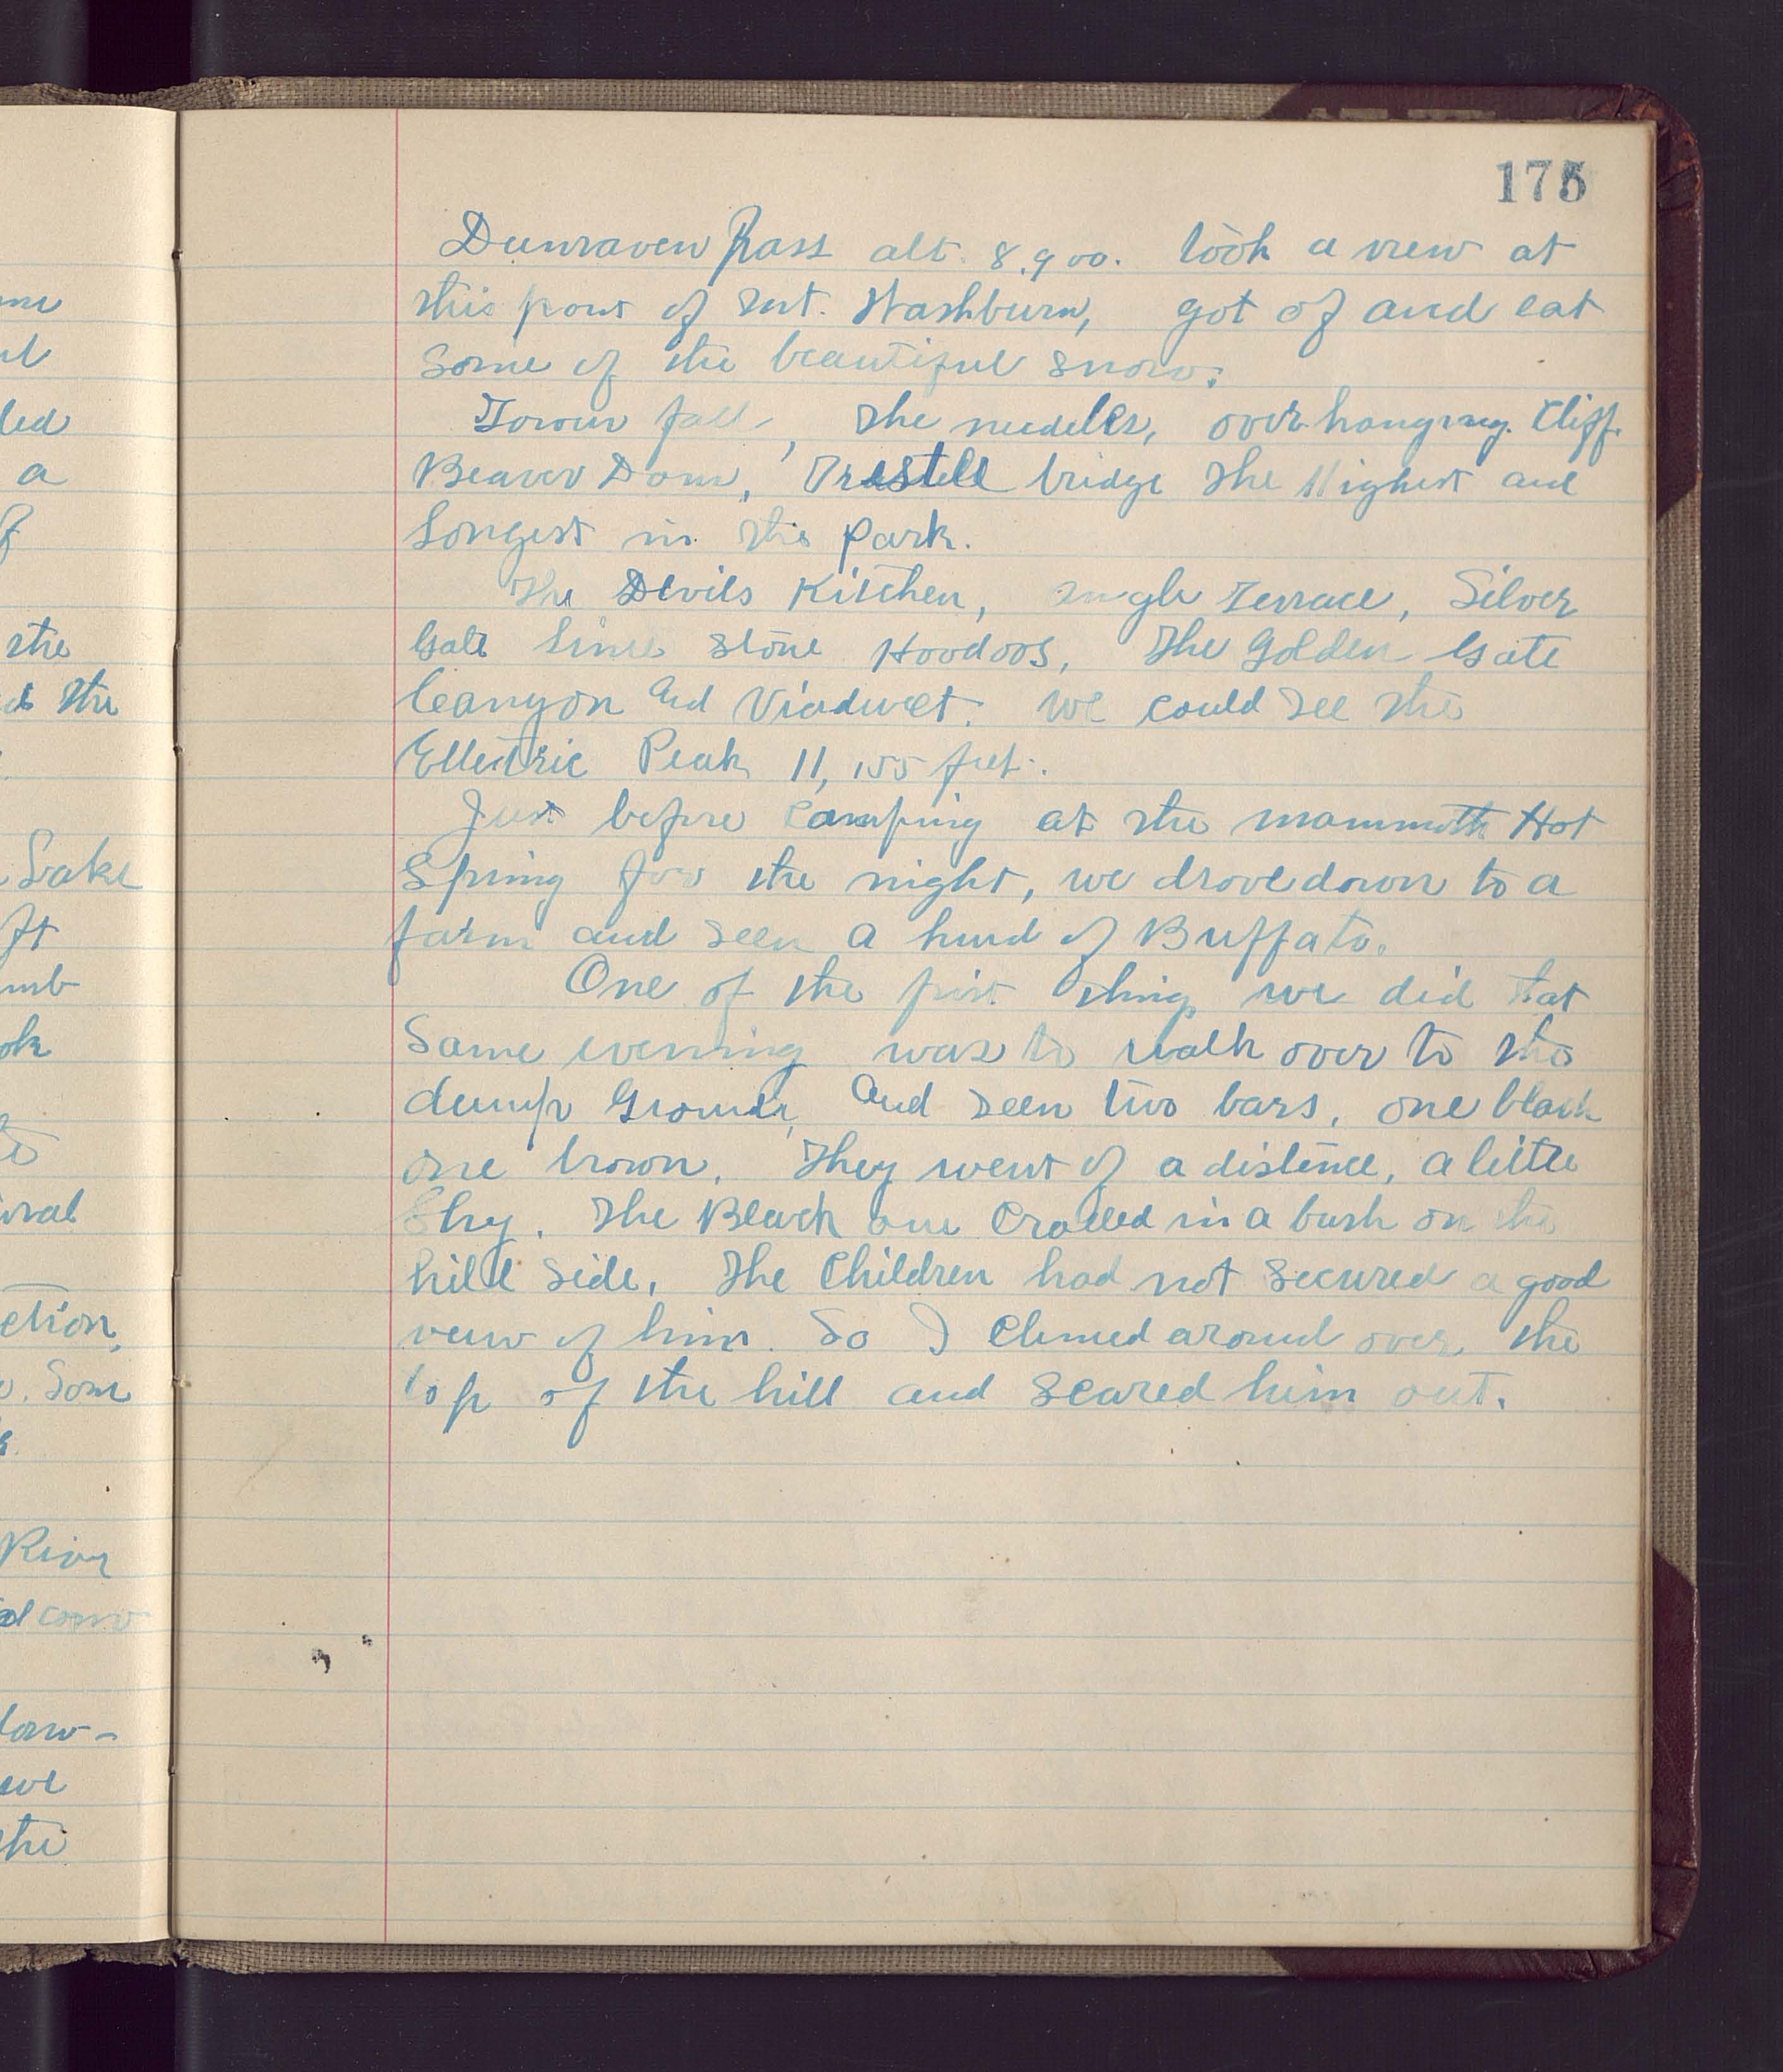 175
Dunraven Pass alt. 8.900. took a view at
this point of mt. Washburn, got of and eat
some of the beautiful snow.
Tower fall, The needles, over hanging Cliff.
Beaver Dam, Trestell bridge The Highest and
Longest in the Park.
The Devils Kitchen, Terrace, Silver
Gate Lime stone Hoodoos, The Golden Gate
Canyon and Viaduct. We could see the
Ellectric Peak 11,155 feet.
Just before camping at the mammoth Hot
Spring for the night, we drove down to a
farm and seen a hurd of Buffato.
One of the first thing we did that
Same evening was to walk over to the
dump Grounds, and seen two bars, one black
one brown. They went of a distence, a little
Shy. The Black one Cralled in a bush on the
hill side. The Children had not secured a good
veiw of him. So I Climed around over the
top of the hill and scared him out.
led
a
the
the
Lake
ft
River
we
the